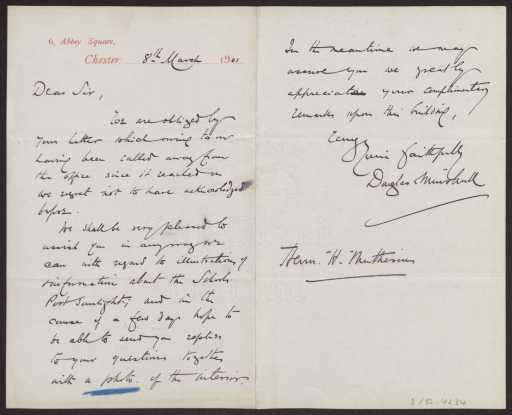 6, Abbey Square,
Chester. 8th March 1901
Dear Sir,
We are obliged by
your letter which owing to our
having been called away from
the office since it reached us
we regret not to have acknowledged
before.
We shall be very pleased to
assist you in anyway we
can with regard to illustrations &
information about the Schools
Port Sunlight, and in the
course of a few days hope to
be able to send you replies
to your questions together
with a photo. of the interior
In the meantime we may
assure you we greatly
appreciate your complimentary
remarks upon this building,
Yours faithfully
Douglas & Minshull
Herrn. "H." Muthesius